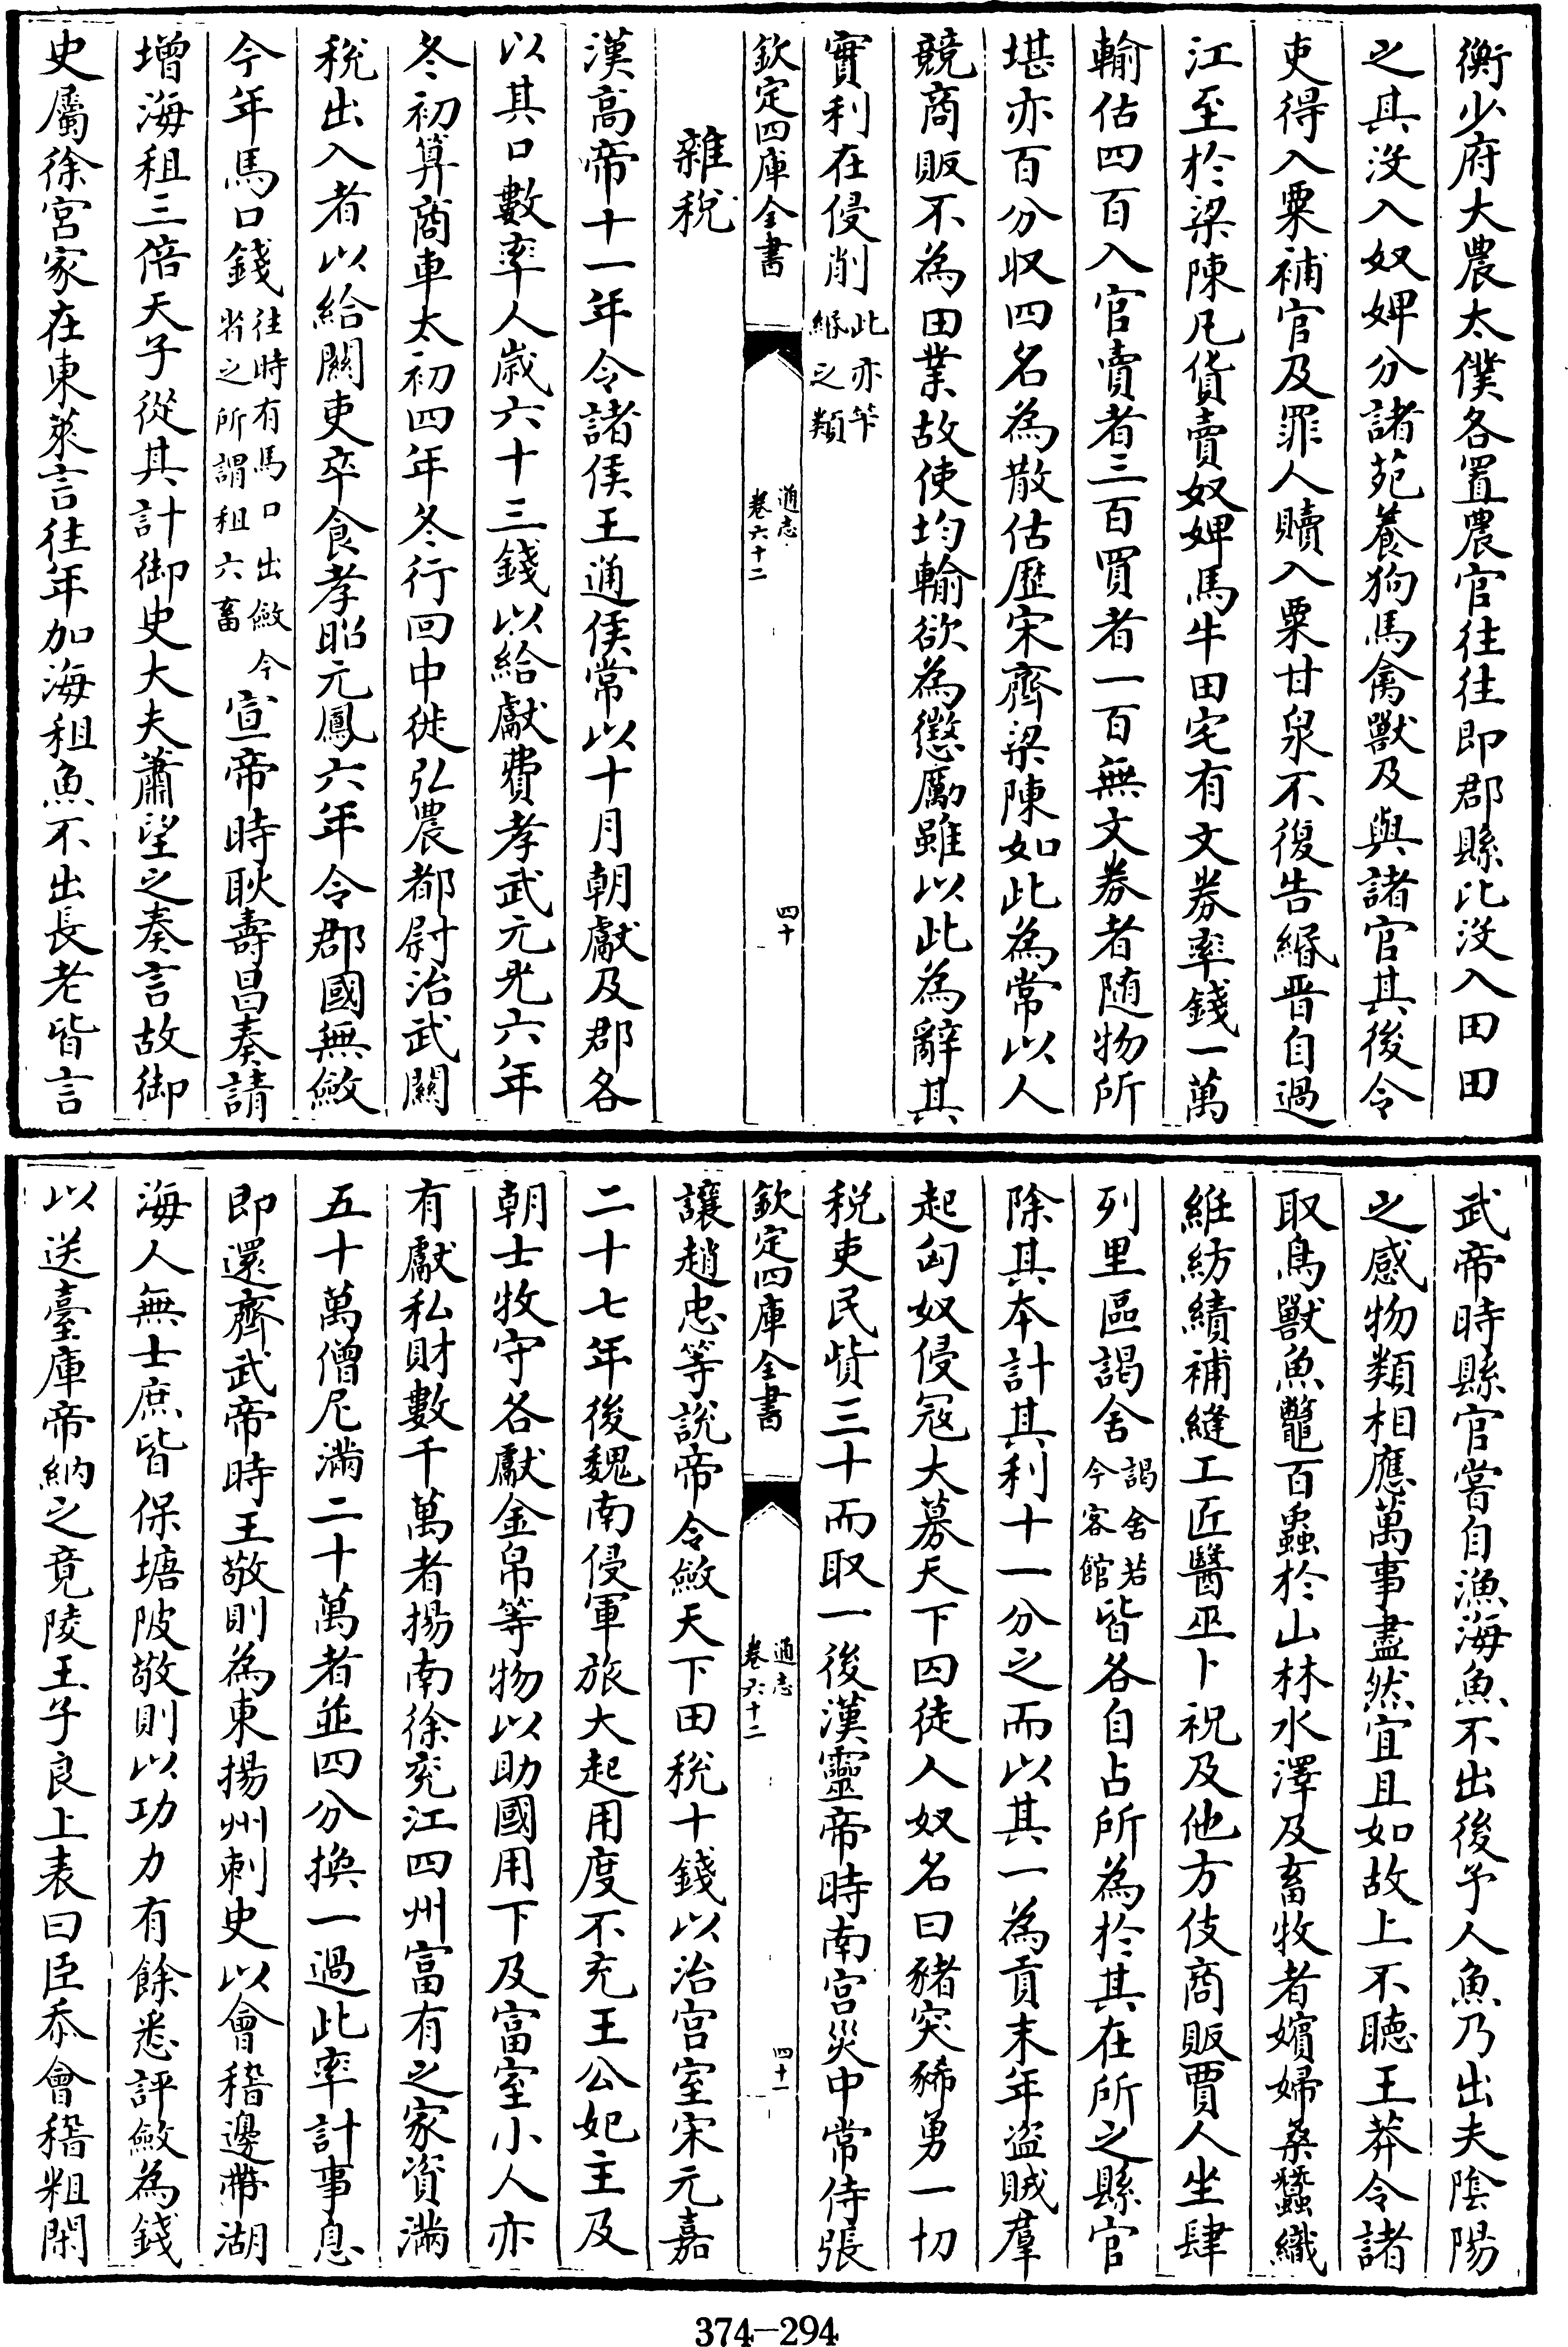 衡少府大農太僕各置農官往往即郡縣比没入田田
之其没入奴婢分諸苑養狗馬禽獸及與諸官其後令
吏得入粟補官及罪人贖入粟甘泉不復告緡晋自過
江至於梁陳凡貨賣奴婢馬牛田宅有文券率錢一萬
輸估四百入官賣者三百買者一百無文券者随物所
堪亦百分收四名為散估歴宋齊梁陳如此為常以人
競商販不為田業故使均輸欲為懲勵雖以此為辭其
實利在侵削此亦筭緡之類
欽定四庫全書 通志 卷六十二 四十
雜税
漢高帝十一年令諸侯王通侯常以十月朝獻及郡各
以其口數率人歲六十三錢以給獻費孝武元光六年
冬初算商車太初四年冬行回中徙弘農都尉治武關
税出入者以給關吏卒食孝昭元鳳六年令郡國無斂
今年馬口錢往時有馬口出斂今省之所謂租六畜宣帝時耿壽昌奏請
增海租三倍天子從其計御史大夫蕭望之奏言故御
史屬徐宮家在東萊言往年加海租魚不出長老皆言
武帝時縣官嘗自漁海魚不出後予人魚乃出夫陰陽
之感物類相應萬事盡然宜且如故上不聽王莽令諸
取鳥獸魚鼈百蟲於山林水澤及畜牧者嬪婦桑蠶織
紝紡績補縫工匠醫巫卜祝及他方伎商販賈人坐肆
列里區謁舍謁舍若今客館皆各自占所為於其在所之縣官
除其本計其利十一分之而以其一為貢末年盗賊羣
起匈奴侵冦大募天下囚徒人奴名曰豬突豨勇一切
税吏民貲三十而取一後漢靈帝時南宫災中常侍張
欽定四庫全書 通志 卷六十二 四十一
讓趙忠等說帝令斂天下田税十錢以治宫室宋元嘉
二十七年後魏南侵軍旅大起用度不充王公妃主及
朝士牧守各獻金帛等物以助國用下及富室小人亦
有獻私財數千萬者揚南徐兖江四州富有之家資滿
五十萬僧尼滿二十萬者並四分換一過此率計事息
即還齊武帝時王敬則為東揚州刺史以會稽邊帶湖
海人無士庶皆保塘陂敬則以功力有餘悉評斂為錢
以送臺庫帝納之竟陵王子良上表曰臣忝會稽粗閑
374-294